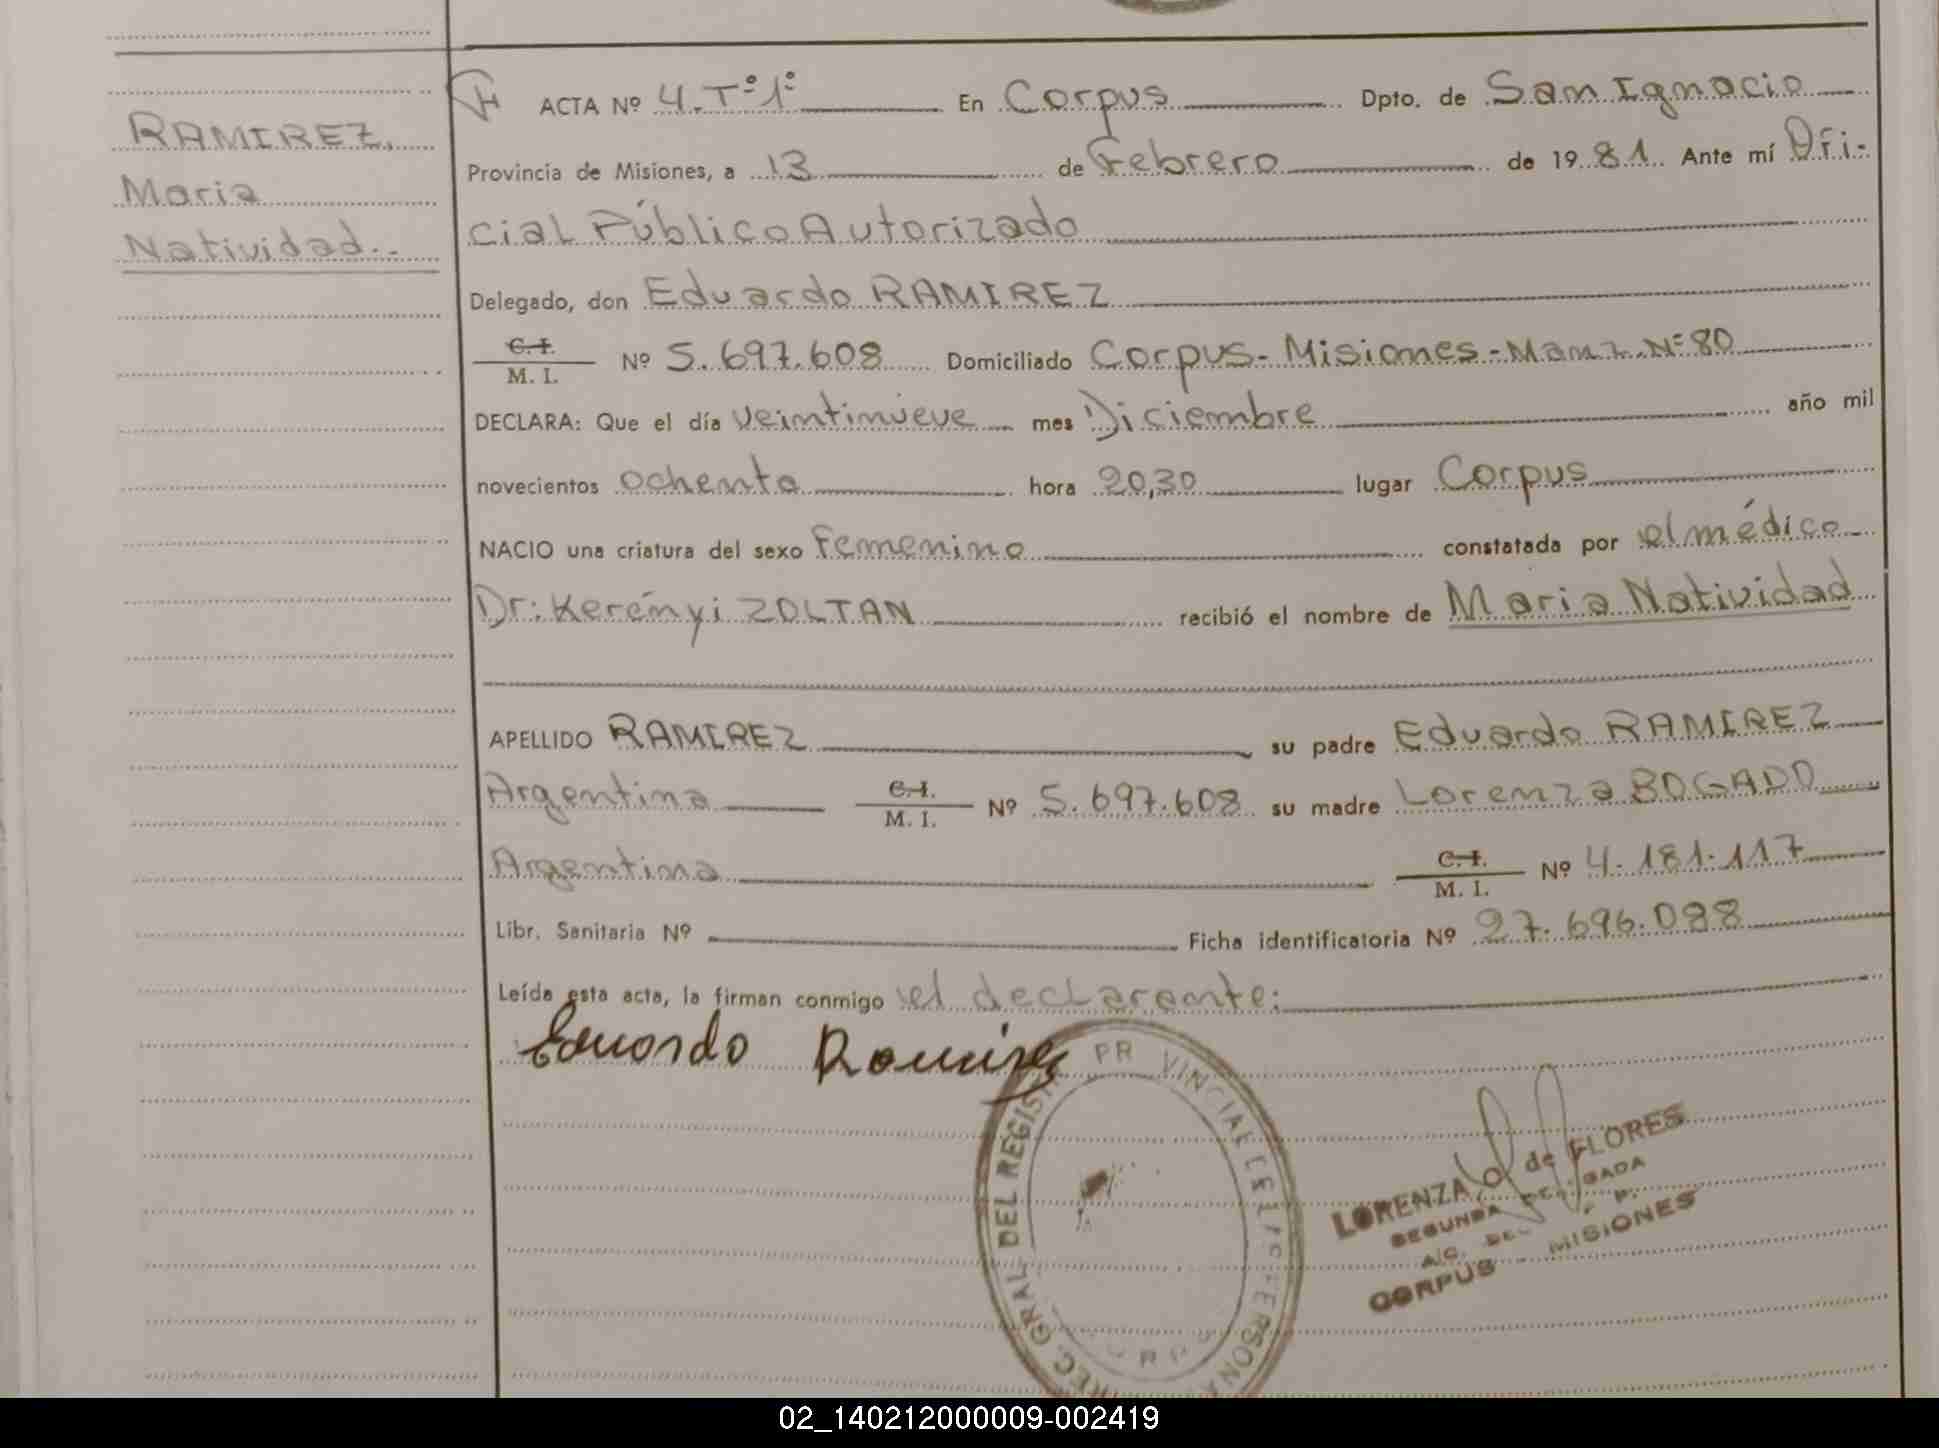 RAMIREZ,
Maria
Natividad.-
ACTA Nº 4.Tº1º En Corpus Dpto. de San Ignacio
Provincia de Misiones, a 13 de Febrero de 1981. Ante mí Ofi-
cial Público Autorizado
Delegado, don Eduardo RAMIREZ
C. I.
M. I.
Nº 5.697.608 Domiciliado Corpus-Misiones-Manz.Nº80
DECLARA: Que el día veintinueve mes Diciembre año mil
novecientos ochenta hora 20,30 lugar Corpus
NACIO una criatura del sexo Femenino constatada por el médico
Dr: Kerényi ZOLTAN recibió el nombre de Maria Natividad
APELLIDO RAMIREZ su padre Eduardo RAMIREZ
Argentina C.I. M. I. Nº 5.697.608 su madre Lorenza BOGADO
Argentina C.I. M. I. Nº 4.181.117
Libr. Sanitaria Nº Ficha identificatoria Nº 27.696.088
Leída esta acta, la firman conmigo el declarante:
Eduardo Ramirez
DEL REGIST PR VINCIAL DE PERSONA
REC. GRAL
LORENZA O de FLORES
SEGUNDA
A/C.
CORPUS MISIONES
02_140212000009-002419